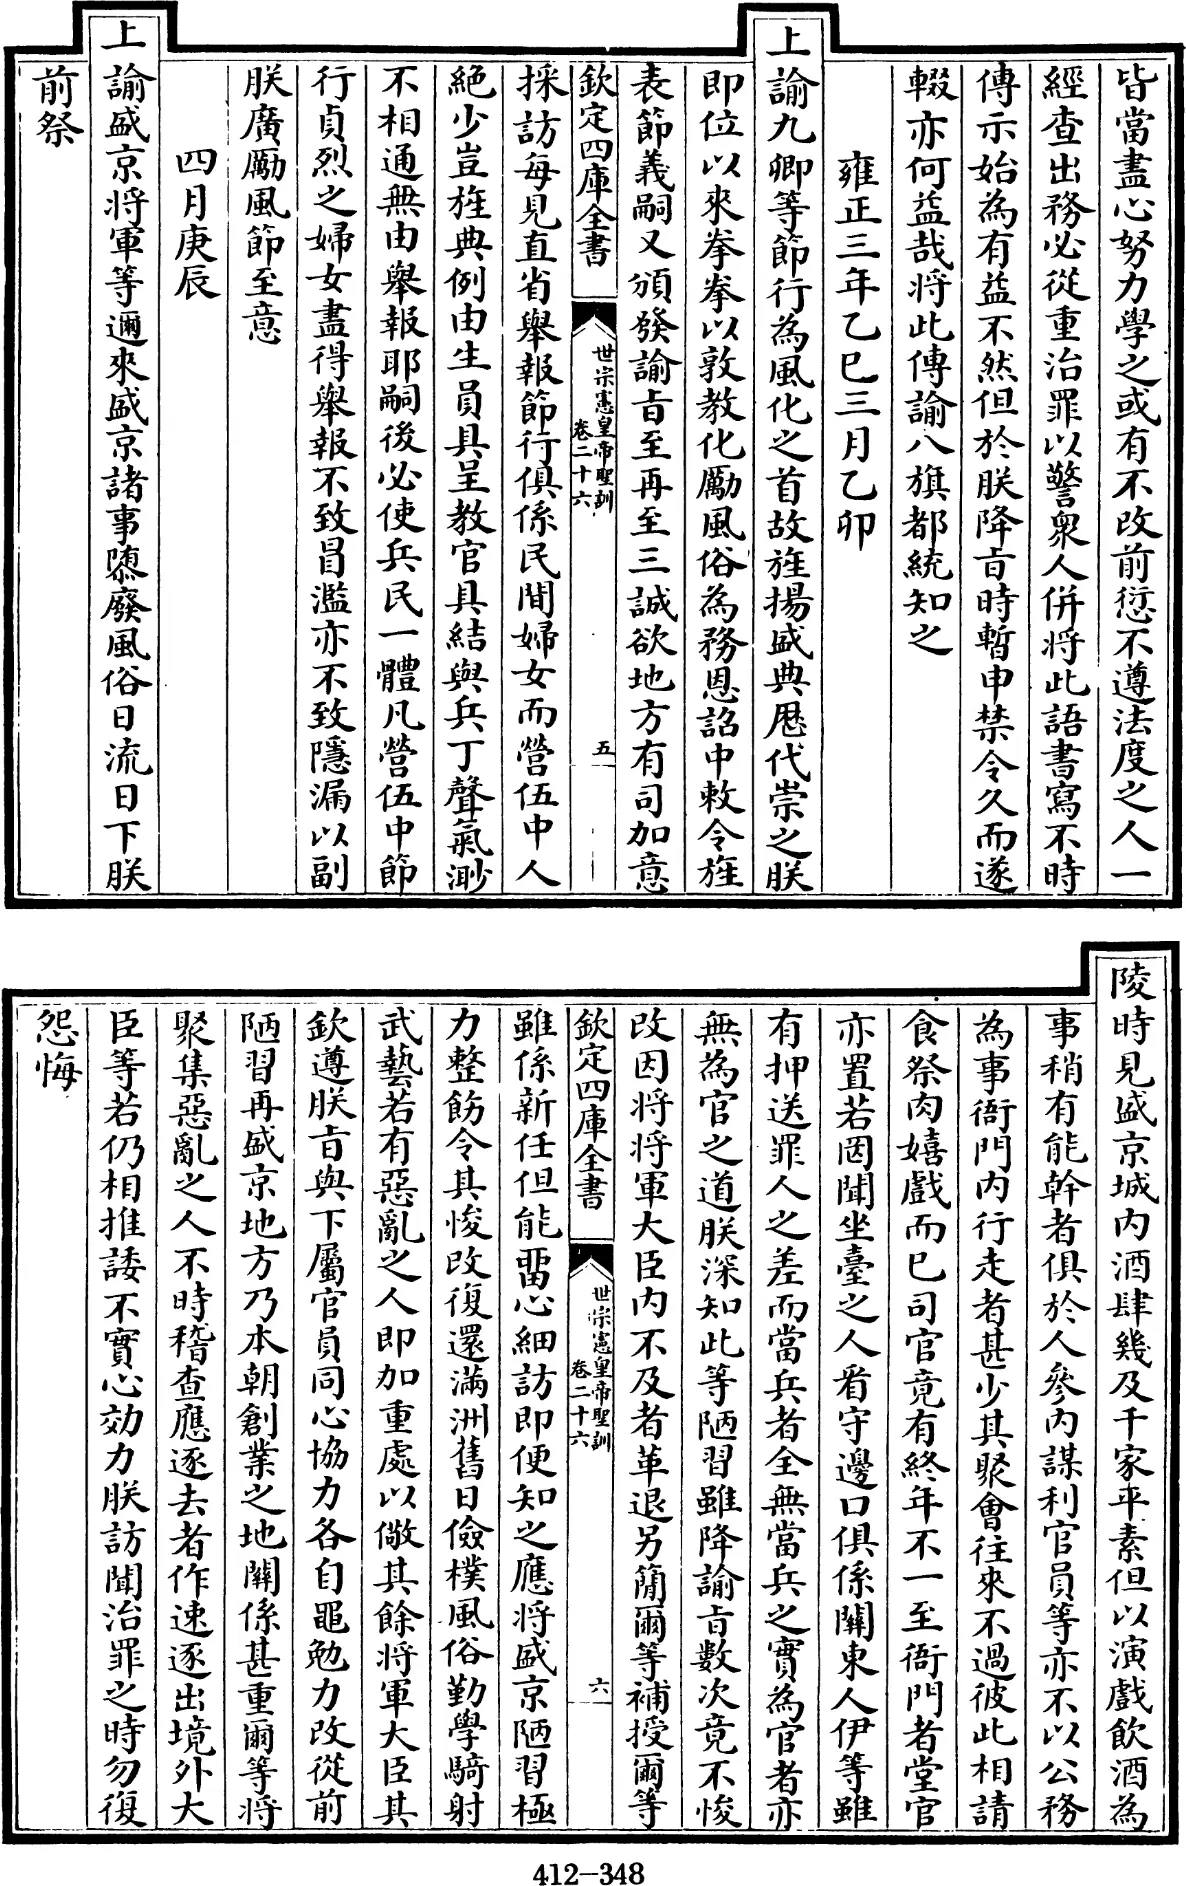 皆當盡心努力學之或有不改前愆不遵法度之人一
經查出務必從重治罪以警衆人併將此語書寫不時
傳示始為有益不然但於朕降㫖時暫申禁令久而遂
輟亦何益哉將此傳諭八旗都統知之
雍正三年乙巳三月乙卯
上諭九卿等節行為風化之首故旌揚盛典歴代崇之朕
即位以來拳拳以敦教化勵風俗為務恩詔中敕令旌
表節義嗣又頒發諭㫖至再至三誠欲地方有司加意
欽定四庫全書
世宗憲皇帝聖訓
卷二十六
五
採訪每見直省舉報節行俱係民間婦女而營伍中人
絶少豈旌典例由生員具呈教官具結與兵丁聲氣渺
不相通無由舉報耶嗣後必使兵民一體凡營伍中節
行貞烈之婦女盡得舉報不致冒濫亦不致隱漏以副
朕廣勵風節至意
四月庚辰
上諭盛京將軍等邇來盛京諸事隳廢風俗日流日下朕
前祭
陵時見盛京城内酒肆幾及千家平素但以演戲飲酒為
事稍有能幹者俱於人參内謀利官員等亦不以公務
為事衙門内行走者甚少其聚會往來不過彼此相請
食祭肉嬉戲而已司官竟有終年不一至衙門者堂官
亦置若罔聞坐臺之人看守邊口俱係關東人伊等雖
有押送罪人之差而當兵者全無當兵之實為官者亦
無為官之道朕深知此等陋習雖降諭㫖數次竟不悛
改因將將軍大臣内不及者革退另簡爾等補授爾等
欽定四庫全書
世宗憲皇帝聖訓
卷二十六
六
雖係新任但能畱心細訪即便知之應將盛京陋習極
力整飭令其悛改復還滿洲舊日儉樸風俗勤學騎射
武藝若有惡亂之人即加重處以儆其餘將軍大臣其
欽遵朕㫖與下屬官員同心協力各自黽勉力改從前
陋習再盛京地方乃本朝創業之地關係甚重爾等將
聚集惡亂之人不時稽查應逐去者作速逐出境外大
臣等若仍相推諉不實心効力朕訪聞治罪之時勿復
怨悔
412-348